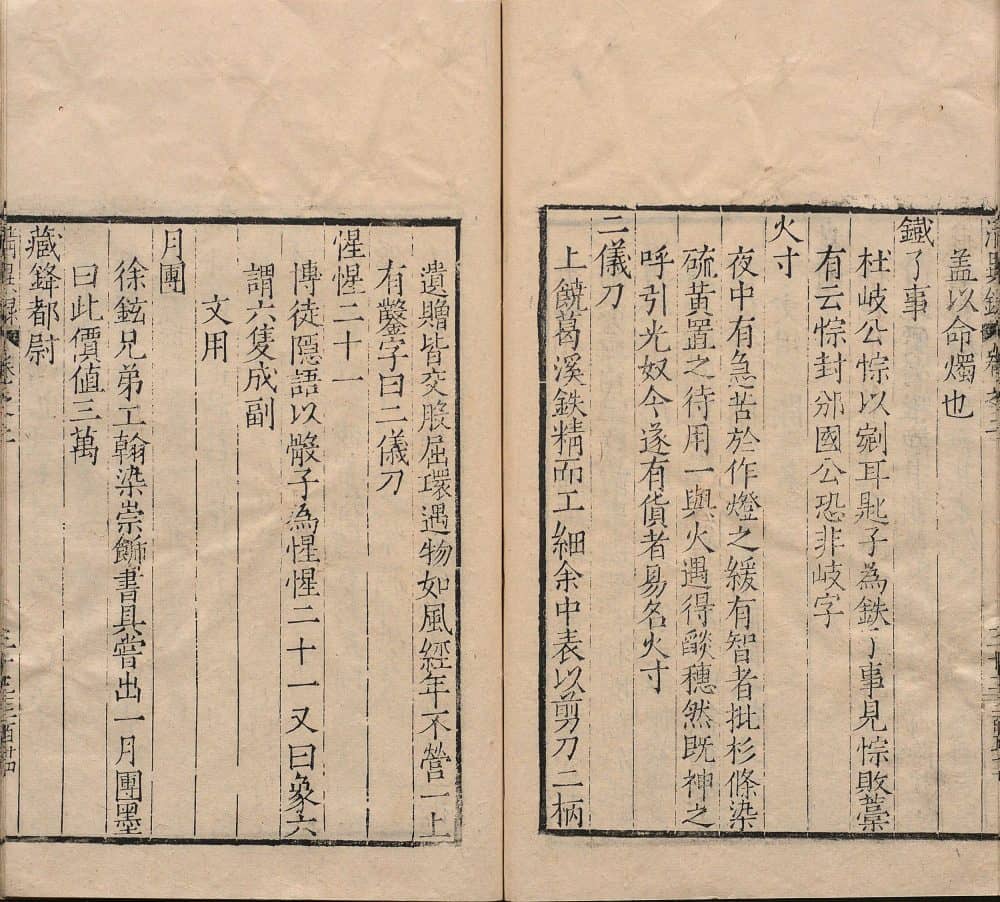 盖以命燭也
鐵了事
杜岐公悰以剜耳匙子為鉄了事見悰敗藁
有云悰封邠國公恐非岐字
火寸
夜中有急苦於作燈之緩有智者批杉條染
硫黃置之待用一與火遇得燄穗然既神之
呼引光奴今遂有貨者易名火寸
二儀刀
上饒葛溪鉄精而工細余中表以剪刀二柄
遺贈皆交股屈環遇物如風經年不營一上
有鑿字曰二儀刀
惺惺二十一
博徒隱語以骰子為惺惺二十一又曰象六
謂六隻成副
文用
月團
徐鉉兄弟工翰染崇飾書具嘗出一月團墨
曰此價值三萬
藏鋒都尉